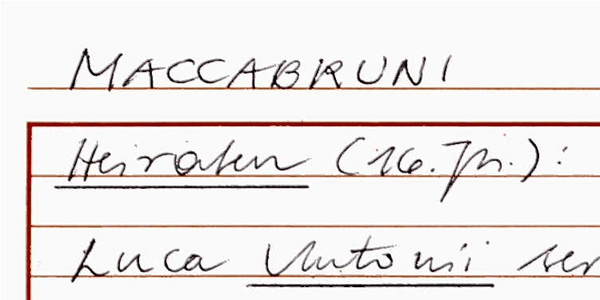 MACCABRUNI
Heiraten (16. Jh.):
Luca Antonii ser